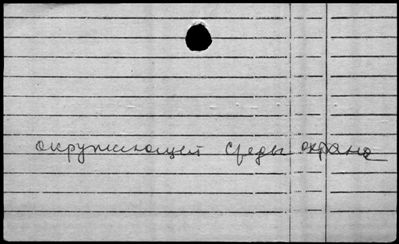 окружающей среды охрана